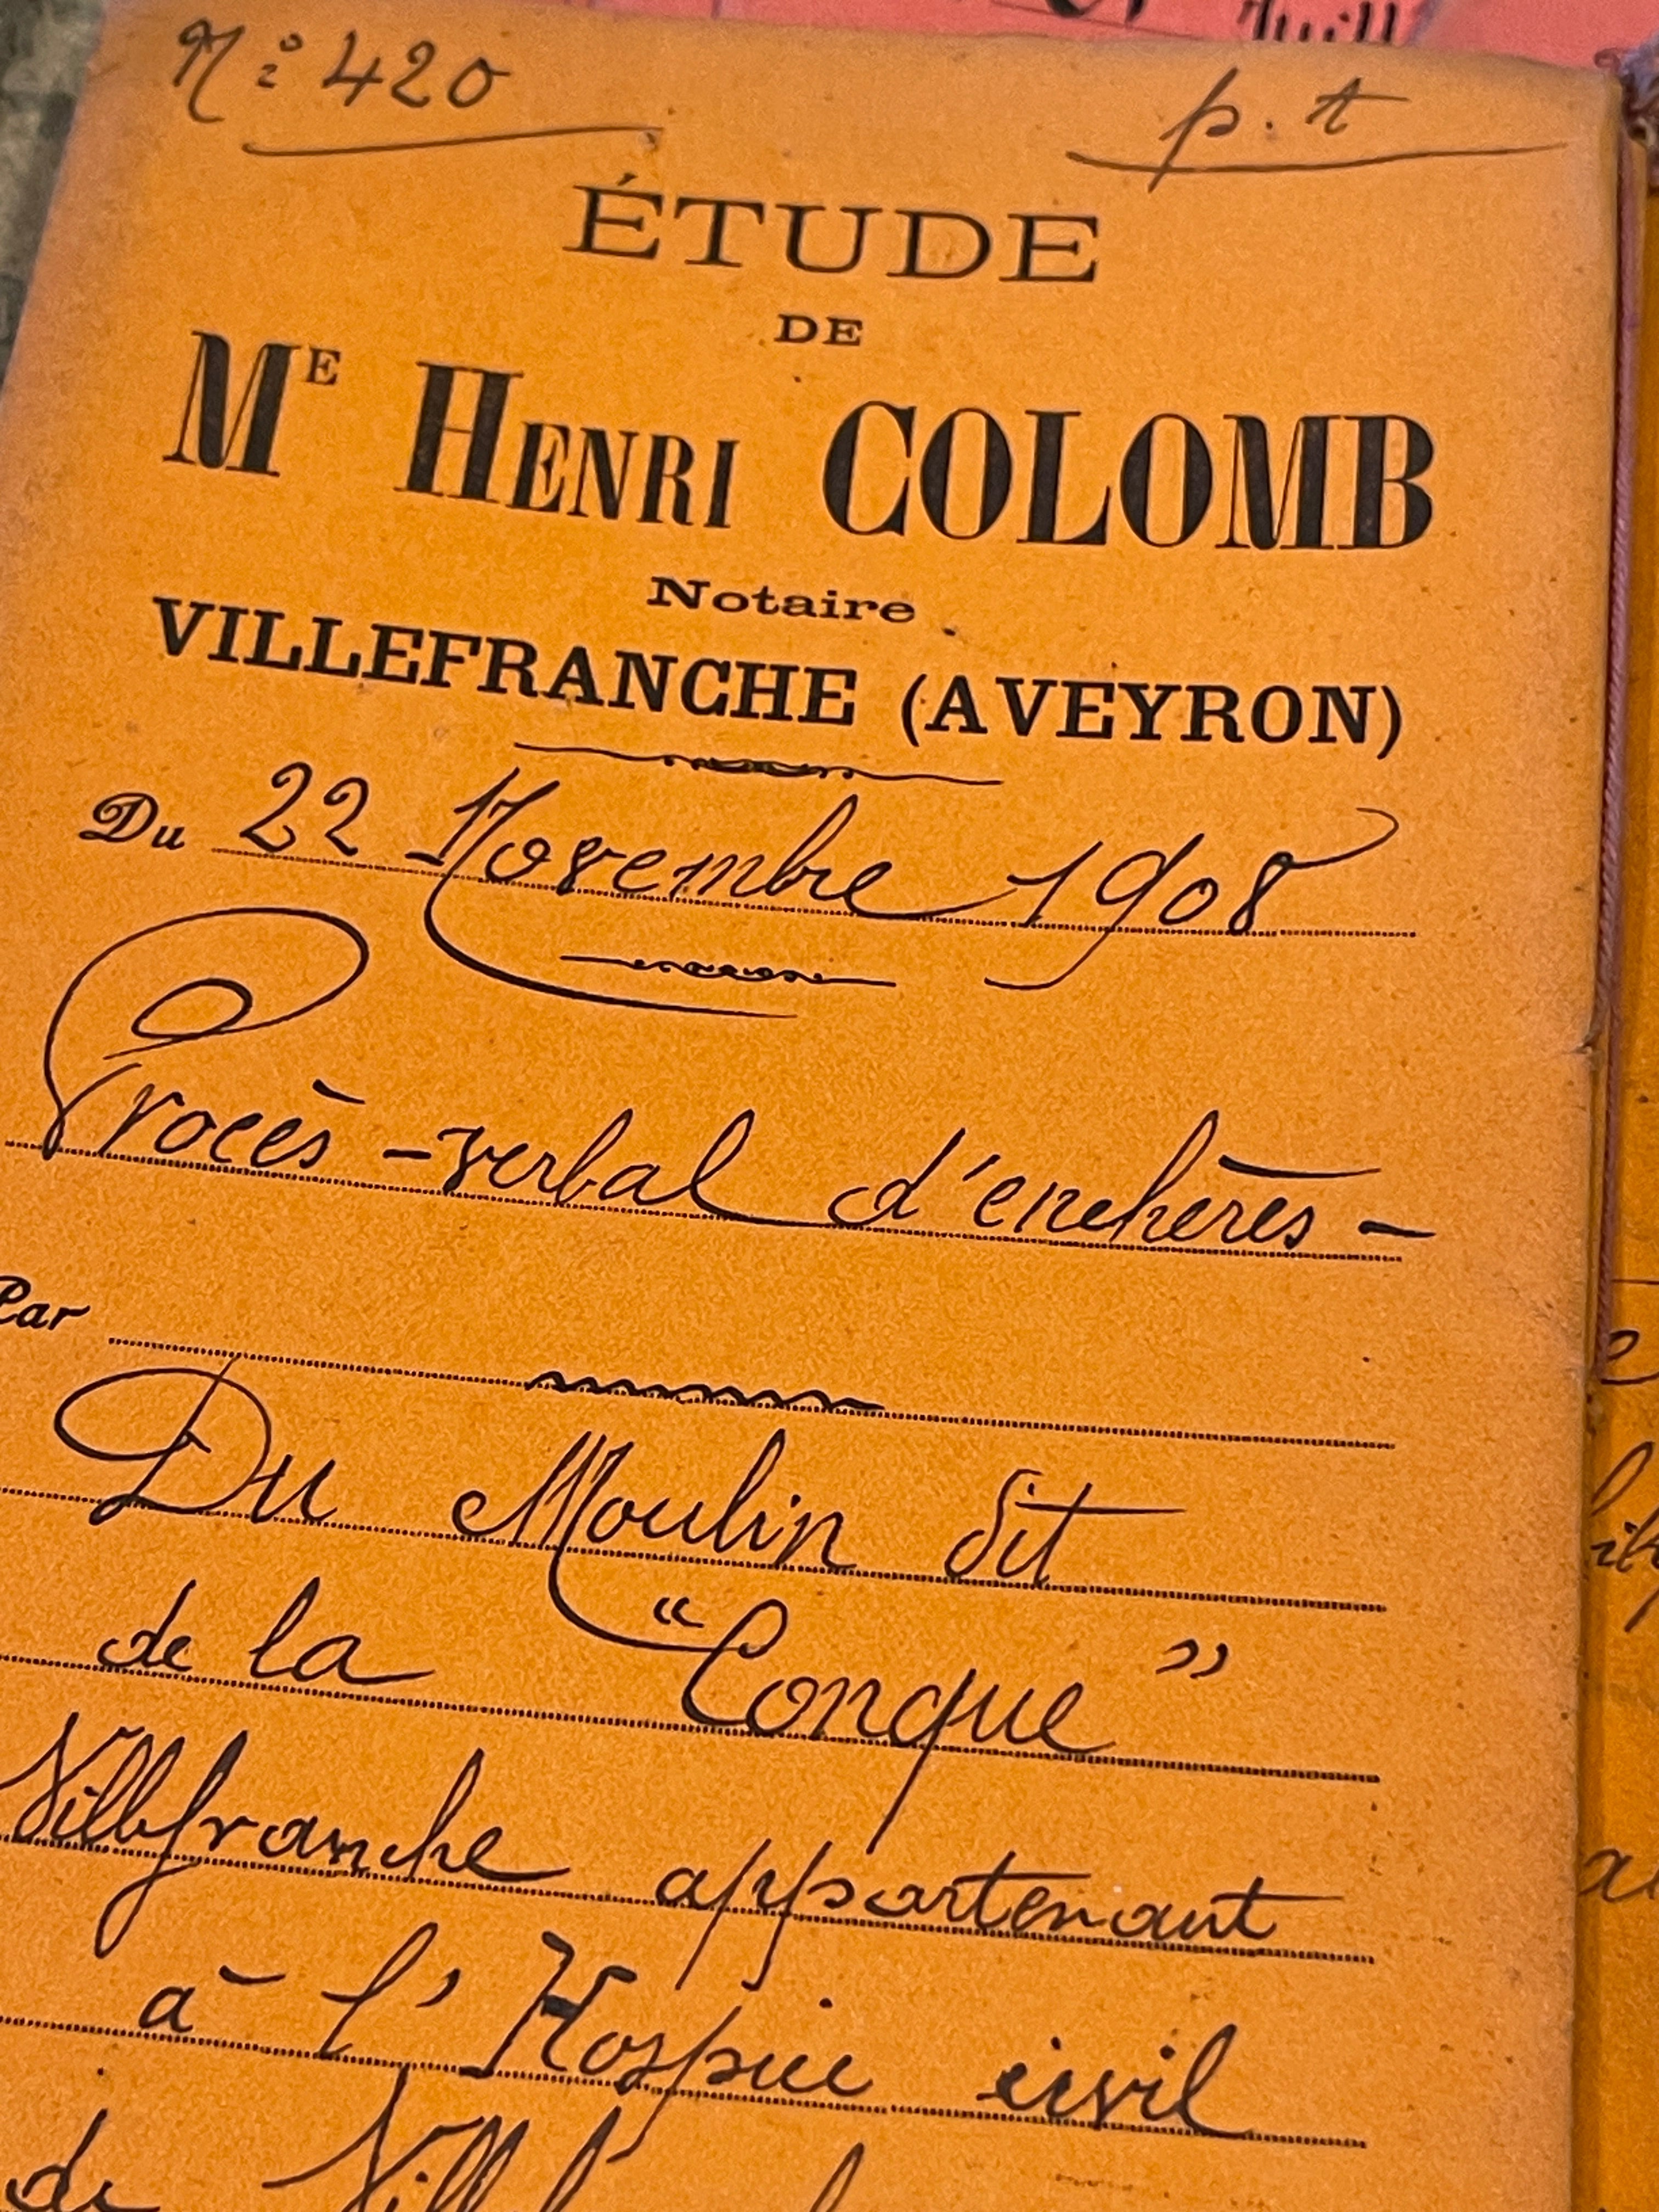 N° 420
p. t
ÉTUDE
DE
ME HENRI COLOMB
Notaire
VILLEFRANCHE (AVEYRON)
Du 22 Novembre 1908
Procès-verbal d'enchères -
Par
Du Moulin dit
de la "Conque"
Villefranche appartenant
à l'Hospice civil
de